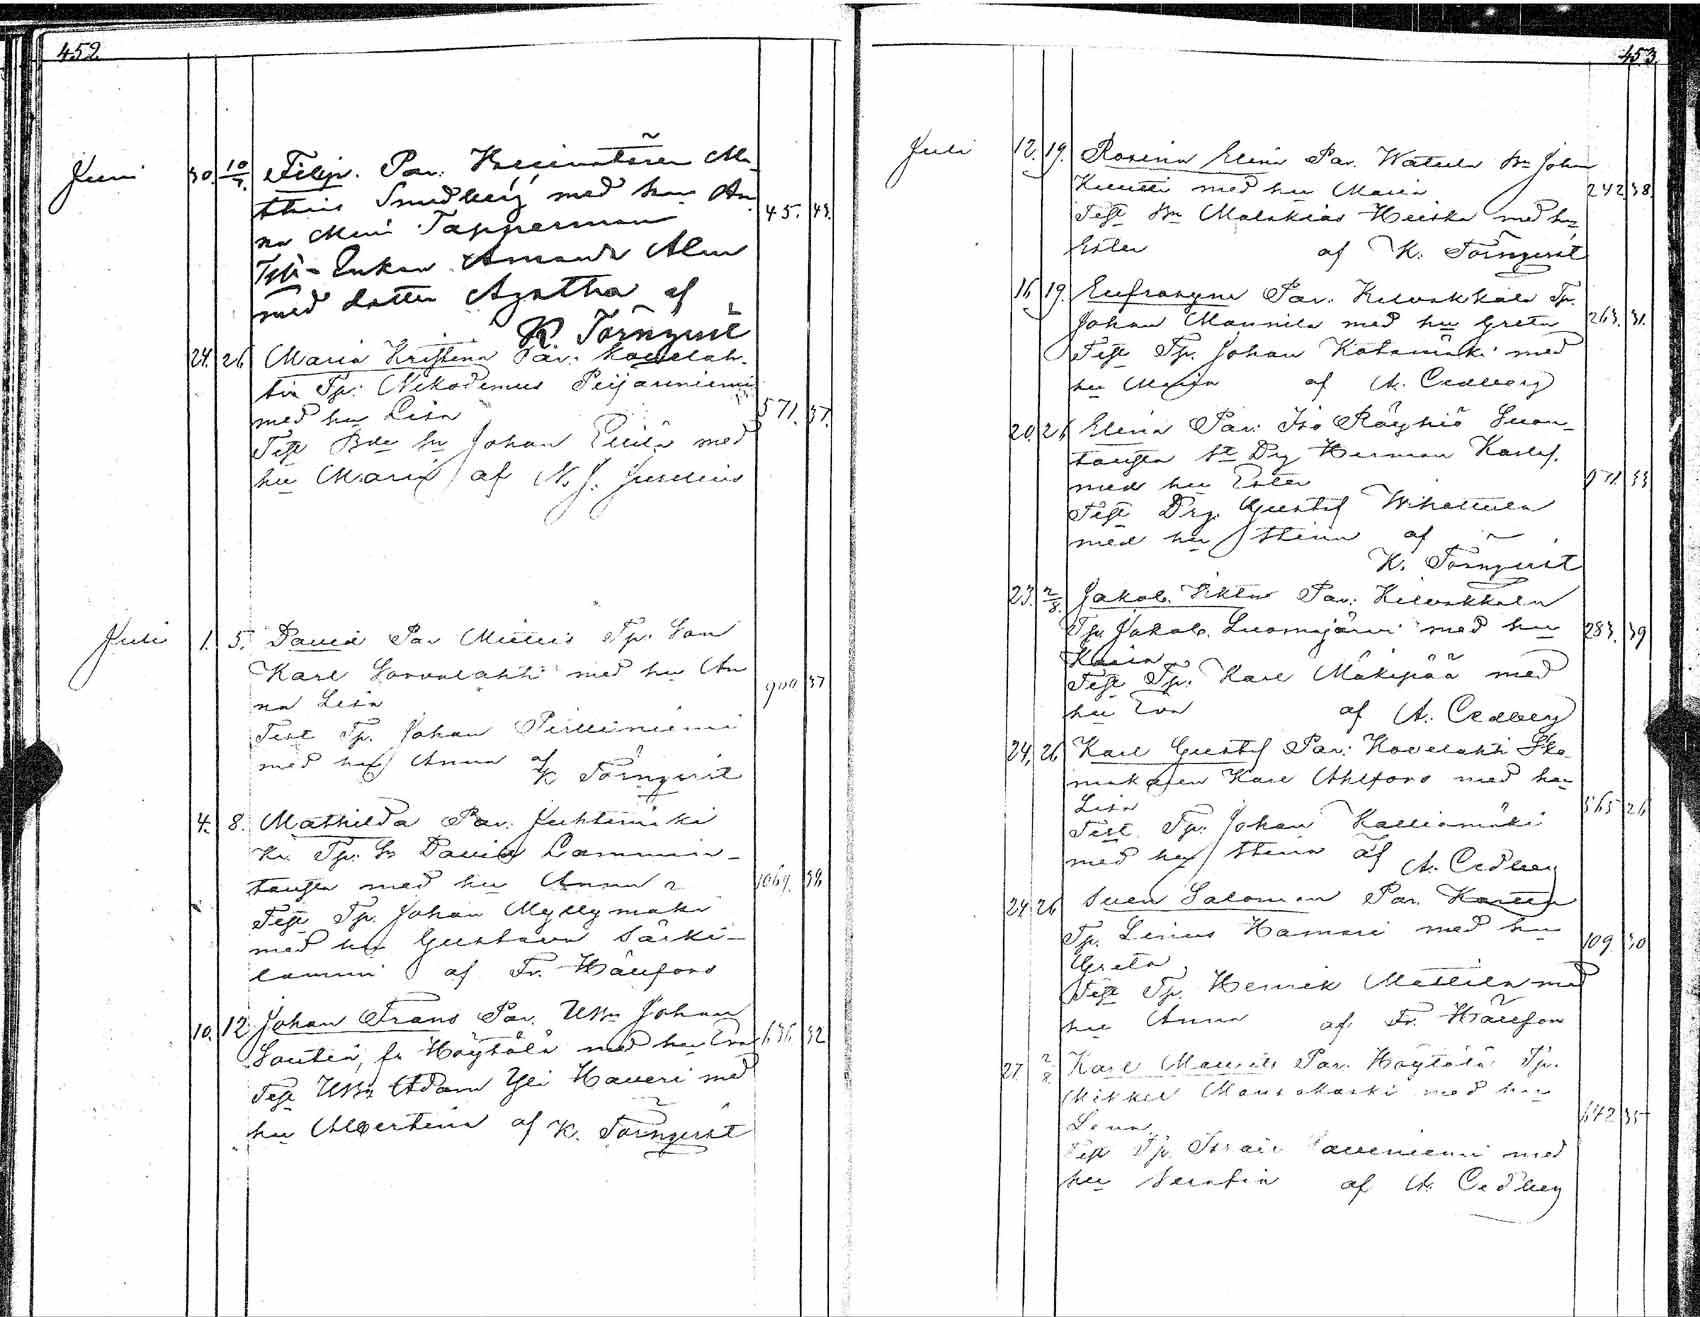 452
Juni 30. 10/7. Filip. Par. Ma-
thias Smedberg med hu An- 45. 43.
na Mari Tapperman
Test Enkan Amanda Alm
med dotter Agatha af
K. Törnqvist
24. 26 Maria Kristina Par: Kovelah-
tis Tp. Nikodemus Peijariniemi
med hu Lisa 571. 37.
Test Bde Sn Johan med
hu Maria af N. J. Juselius
Juli 1. 5. David Par Tp. Son
Karl med hu An 900 37
na Lisa
Test Tp. Johan Pirttiniemi
med hu Anna af
K Törnqvist
4. 8. Mathilda Par. Juhtimäki
Kr. Tp. Sn David Lammin-
tausta med hu Anna 1069. 38
Test Tp. Johan Myllymäki
med hu Gustava Särki-
lammi af Fr. Häufors
10. 12 Johan Frans Par. Ubn Johan
fr Höytölä med hu Eva 636 32
Test Ubn Adam Yli Haveri med
hu Albertina af K. Törnqvist
453.
Juli 12. 19. Rosina Elina Par. Watula Bn John
Knuuti med hu Maria 242 38.
Test Bn Malakias Heiska med hu
Ester af K. Törnqvist
16 19. Eufrosyne Par. Kilvakkala Tp.
Johan Mannila med hu Greta 263. 31.
Test Tp. Johan Katamäki med
hu Maja af A. Cedberg
20. 26 Elina Par: Iso Röyhiö Luon-
tausta St Drg Herman Karlss.
med hu Ester 971 33
Test Drg. Gustaf Wihattula
med hu Stina af
K. Törnqvist
23. 2/8. Jakob Viktor Par: Kilvakkala
Tp. Jakob Luomajärvi med hu 283. 39
Karin
Test Tp. Karl Mäkipää med
hu Eva af A. Cedberg
24. 26 Karl Gustaf Par: Kovelahti Sko-
makaren Karl Ahlfors med hu
Lisa 565 26
Test. Tp. Johan Kalliomäki
med hu Stina af A. Cedberg
24 26 Sven Salomon Par.
Tp. Linus Hamari med hu 109. 30
Greta
Test Tp. Henrik Mattila med
hu Anna af Fr. Häufors
27 2/8. Karl Mauritz Par. Höytölä Tp.
Mikkel med hu
Lena 642 35
Test Tp. Israel med
hu Serafia af A. Cedberg